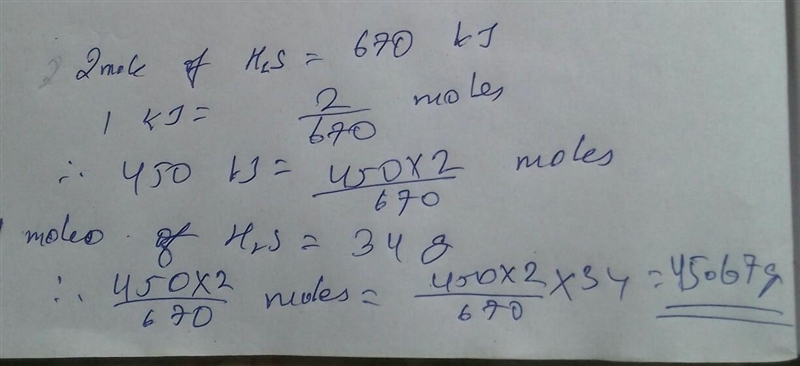 2 mole of H₂S = 670 kJ
1 kJ = 2/670 moles
∴ 450 kJ = 450×2/670 moles
1 moles of H₂S = 34 g
∴ 450×2/670 moles = 450×2/670 × 34 = 45.67g